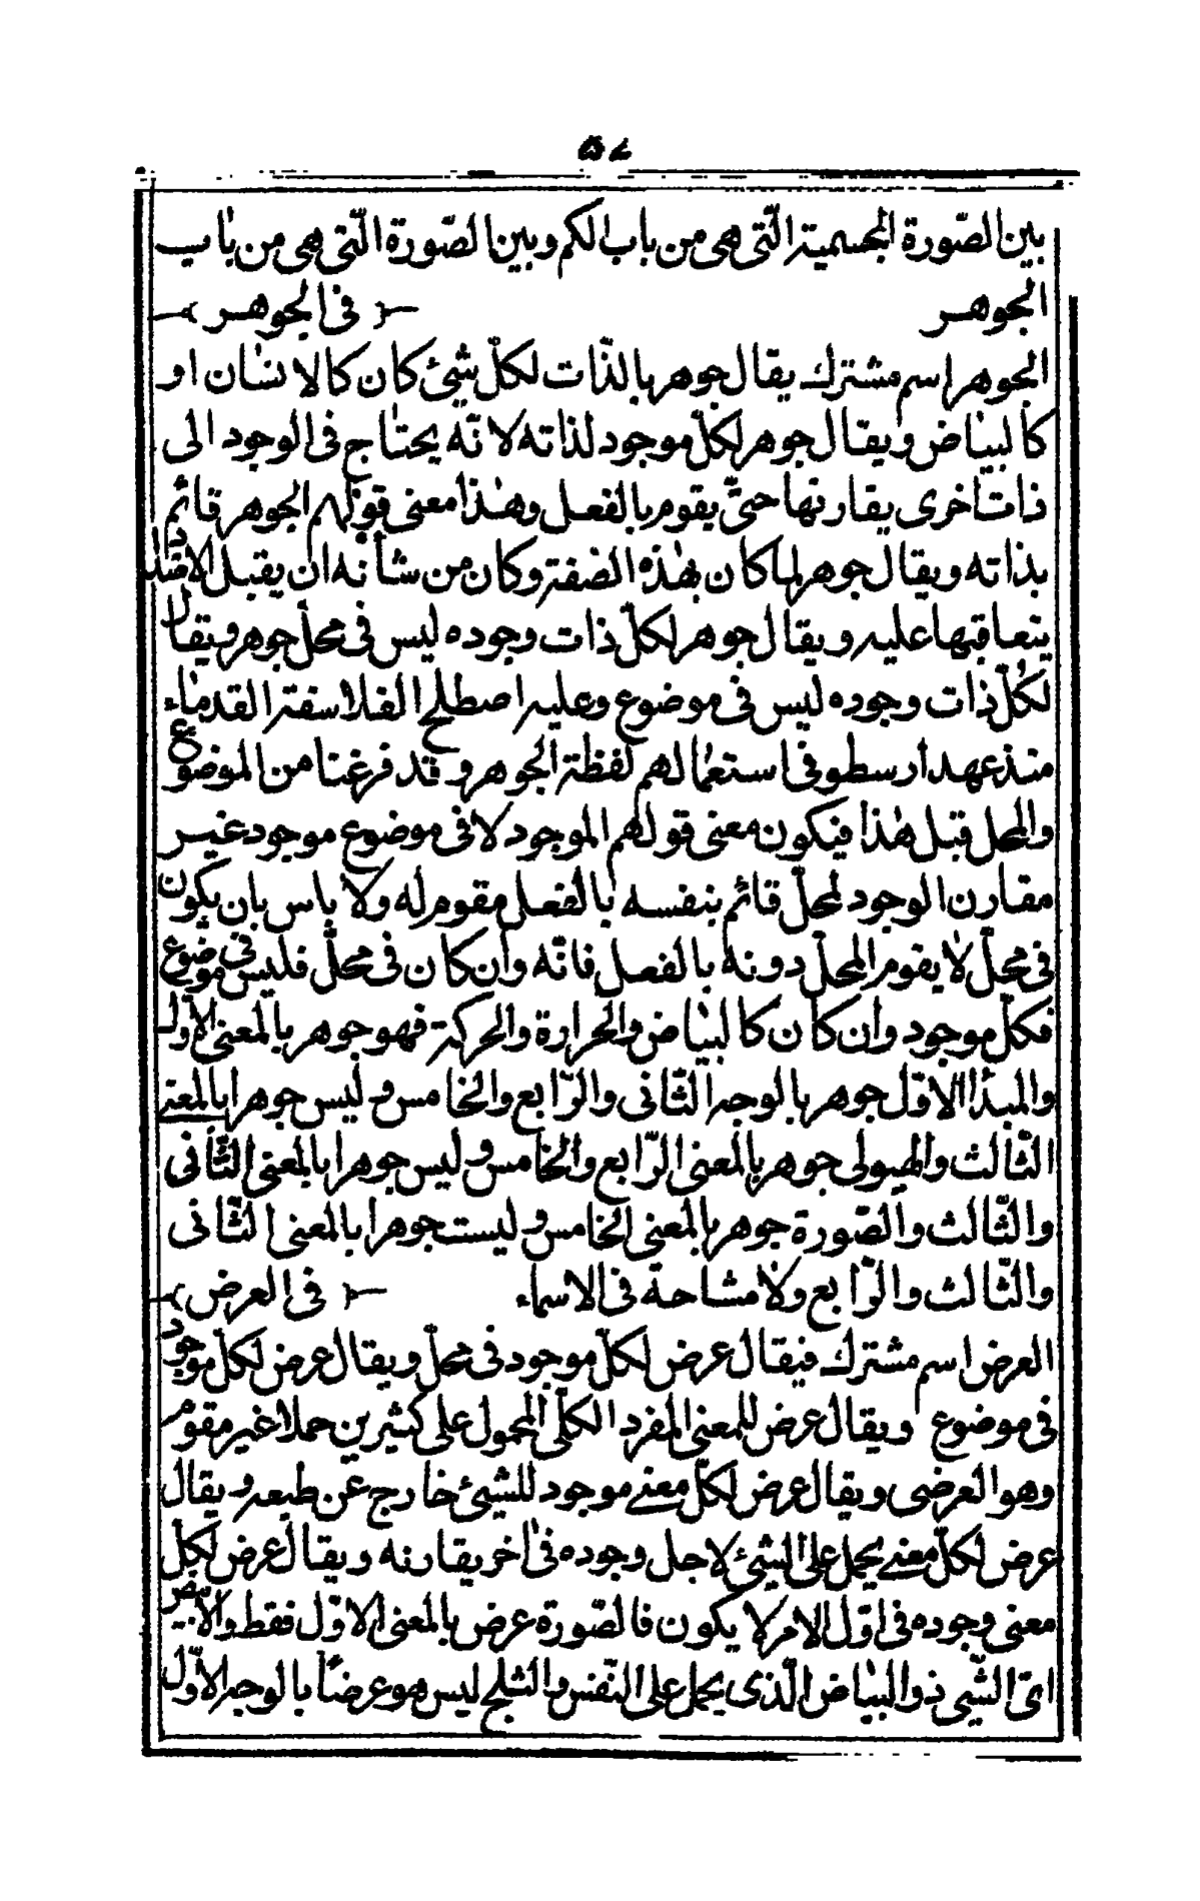 ٥٧
بين الصّورة الجسمية الّتى هى من باب الكم وبين الصّورة الّتى هى من باب
الجوهر ﴿ فى الجوهر ﴾
الجوهر اسم مشترك يقال جوهر بالذّات لكلّ شئ كان كالانسان او
كالبياض ويقال جوهر لكلّ موجود لذاته لا نّه يحتاج فى الوجود الى
ذات اخرى يقارنها حتّى يقوم بالفعل وهذا معنى قولهم الجوهر قائم
بذاته ويقال جوهر لما كان بهذه الصفة وكان من شأنه ان يقبل الاضداد
يتعاقبها عليه ويقال جوهر لكلّ ذات وجوده ليس فى محلّ جوهر ويقال
لكلّ ذات وجوده ليس فى موضوع وعليه اصطلح الفلاسفة القدماء
منذ عهد ارسطو فى استعمالهم لفظة الجوهر وقد فرغنا من الموضوع
والمحل قبل هذا فيكون معنى قولهم الموجود لا فى موضوع موجود غير
مقارن الوجود لمحلّ قائم بنفسه بالفعل مقوم له ولا باس بان يكون
فى محلّ لا يقوم المحلّ دونه بالفعل فانّه وان كان فى محلّ فليس فى موضوع
فكلّ موجود وان كان كالبياض والحرارة والحركة فهو جوهر بالمعنى الاوّل
والمبدأ الاوّل جوهر بالوجه الثّانى والرّابع والخامس وليس جوهرا بالمعنے
الثّالث والهيولى جوهر بالمعنى الرّابع والخامس وليس جوهرا بالمعنى الثّانى
والثّالث والصّورة جوهر بالمعنى الخامس وليست جوهرا بالمعنى الثّانى
والثّالث والرّابع ولا مشاحة فى الاسماء ﴿ فى العرض ﴾
العرض اسم مشترك فيقال عرض لكلّ موجود فى محلّ ويقال عرض لكلّ موجود
فى موضوع ويقال عرض للمعنى المفرد الكلّى المحمول على كثيرين حملا غير مقوم
وهو العرضى ويقال عرض لكلّ معنے موجود للشئ خارج عن طبعه ويقال
عرض لكلّ معنے يحمل على الشئ لاجل وجوده فى اخر يقارنه ويقال عرض لكلّ
معنى وجوده فى اوّل الامر لا يكون فالصّورة عرض بالمعنى الاوّل فقط والابيض
اىّ الشّى ذو البياض الّذى يحمل على النّفس والثلج ليس هو عرضًا بالوجه الاوّل